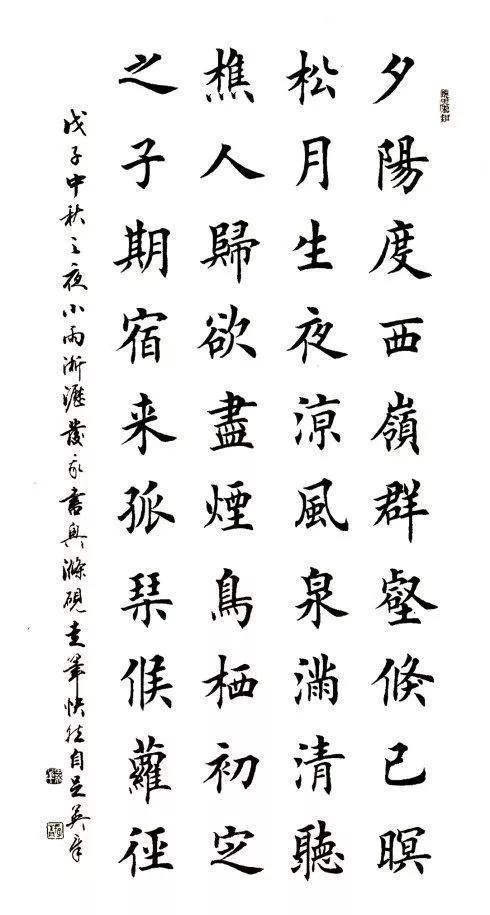 夕陽度西嶺群壑倏已暝
松月生夜涼風泉滿清聽
樵人歸欲盡煙鳥栖初定
之子期宿来孤琴候蘿径
戊子中秋之夜小雨淅瀝發我書興滌硯走筆快然自足英章